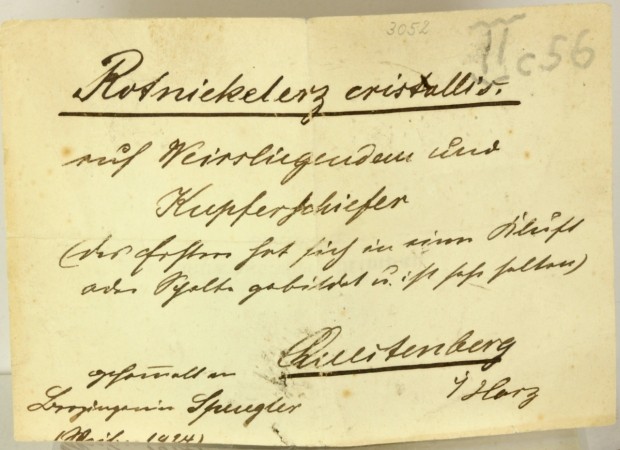 3052
II c 56
Rotnickelerz cristallis.
auf Weissliegendem und
Kupferschiefer
(das Erstere hat sich in einer Kluft
oder Spalte gebildet u. ist sehr selten)
Questenberg
i/ Harz
gesammelt von
Spengler
1924)